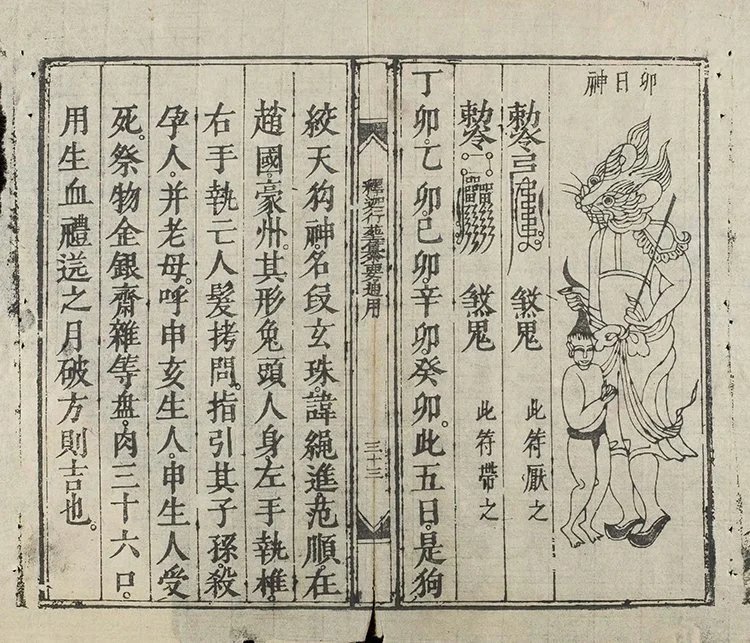 卯日神
勅令 煞鬼 此符厭之
勅令 煞鬼 此符帶之
丁卯。乙卯。己卯。辛卯。癸卯。此五日。是狗
通用
三十三
絞天狗神。名段玄珠。諱繩進范順。在
趙國。豪州。其形兔頭人身。左手執椎。
右手執亡人髮拷問。指引其子孫。殺
孕人。并老母。呼申亥生人。申生人受
死。祭物金銀齋雜等盘。肉三十六口。
用生血禮送之月破方則吉也。